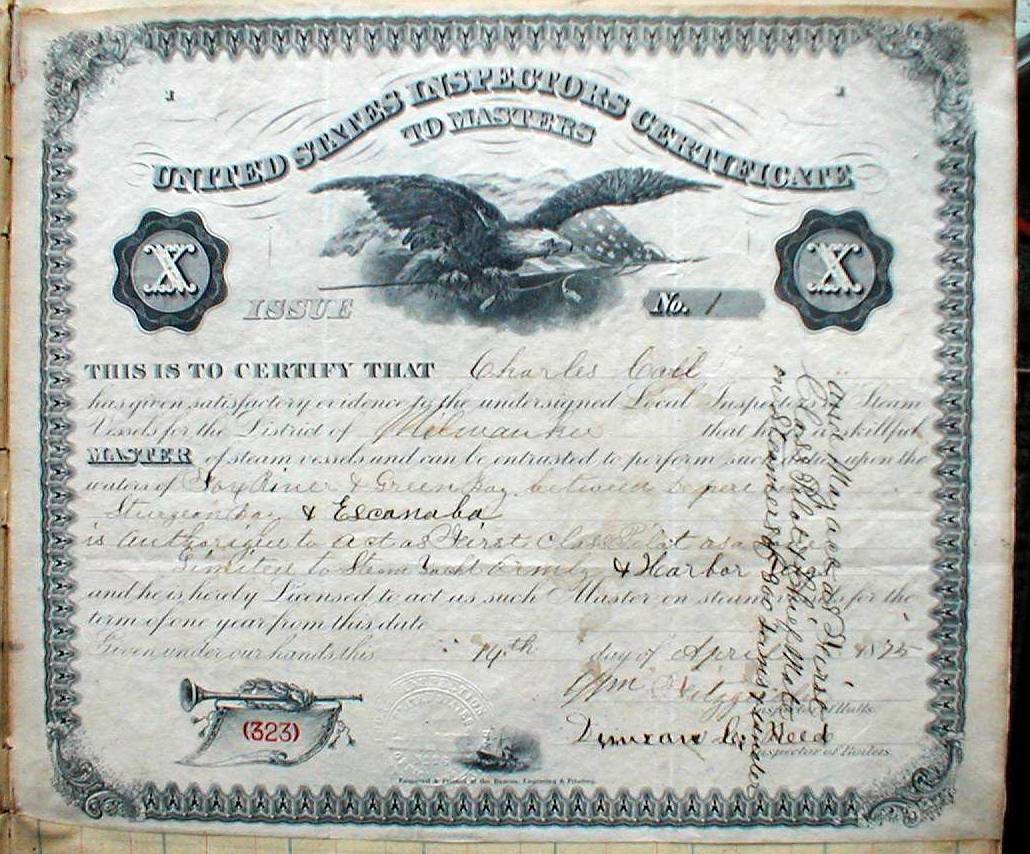 1 1
UNITED STATES INSPECTORS CERTIFICATE
TO MASTERS
X X
ISSUE No. 1
THIS IS TO CERTIFY THAT Charles Cail
has given satisfactory evidence to the undersigned Local Inspectors of Steam
Vessels for the District of Milwaukee that he is a skillful
MASTER of steam vessels and can be entrusted to perform such duties upon the
waters of Fox River & Green Bay between Depere
Sturgeon Bay & Escanaba
is authorized to act as First Class Pilot
Limited to Steam Yacht & Harbor Tugs
and he is hereby Licensed to act as such Master on steam vessels for the
term of one year from this date
Given under our hands this 14th day of April 1875
Wm Inspector of Hulls.
Duncan Reed
Inspector of Boilers.
(323)
Engraved & Printed at the Bureau, Engraving & Printing.
and May act as First
Class Pilot & Chief Mate
on Steamers of 800 tons & under